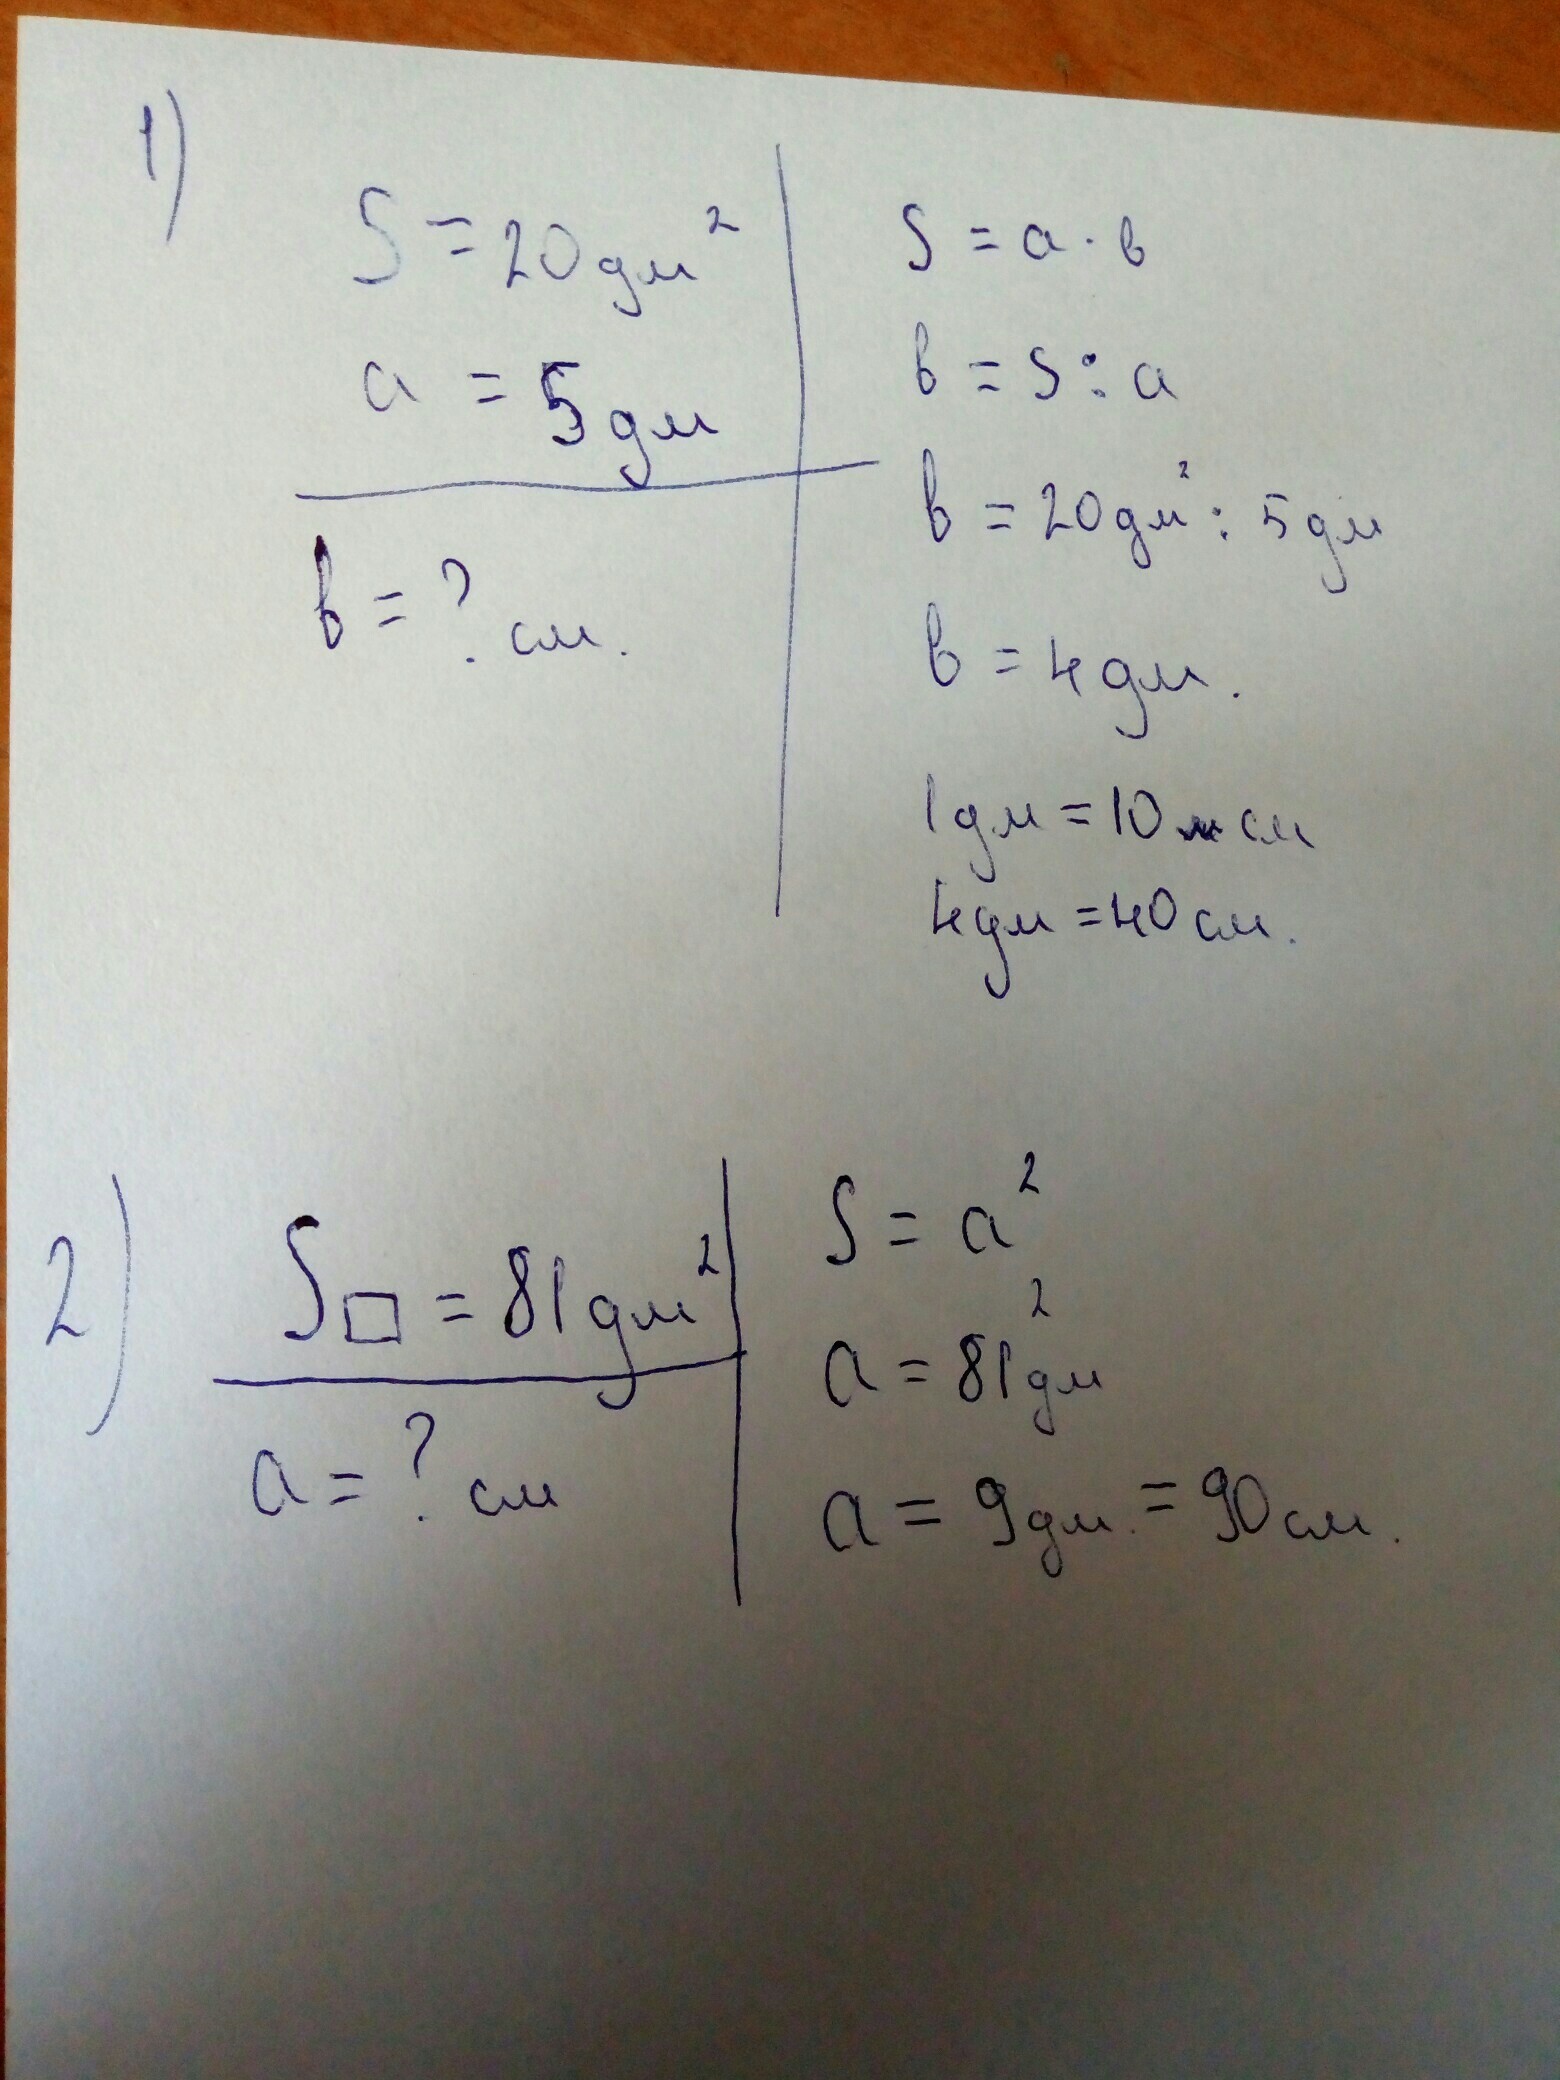 1)
S = 20 дм²
a = 5 дм
b = ? см.
S = a · b
b = S : a
b = 20 дм² : 5 дм
b = 4 дм.
1 дм = 10 см
4 дм = 40 см.
2)
S□ = 81 дм²
a = ? см
S = a²
a = 81 дм²
a = 9 дм. = 90 см.